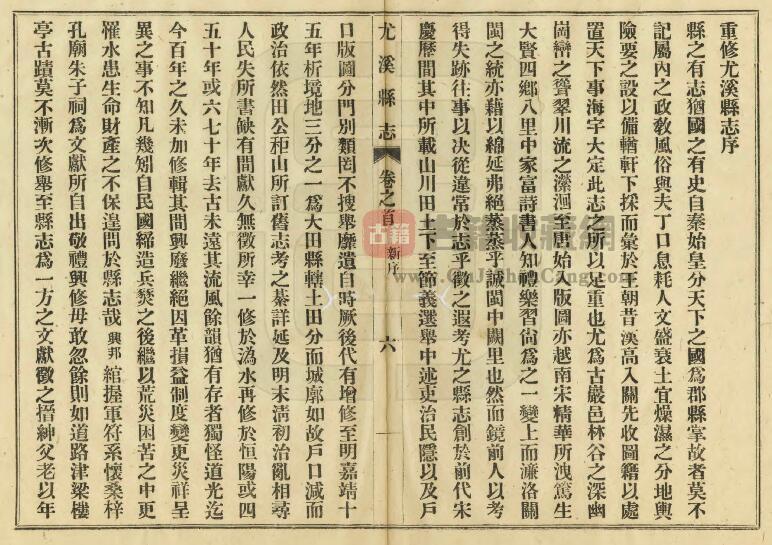 重修尤溪縣志序
縣之有志猶國之有史自秦始皇分天下之國爲郡縣掌故者莫不
記屬內之政敎風俗與夫丁口息耗人文盛衰土宜燥濕之分地輿
險要之設以備輶軒下採而彙於王朝昔漢高入關先收圖籍以處
置天下事海宇大定此志之所以足重也尤爲古巖邑林谷之深幽
崗巒之聳翠川流之瀠洄至唐始入版圖亦越南宋精華所洩篤生
大賢四鄉八里中家富詩書人知禮樂習尙爲之一變上而濂洛關
閩之統亦藉以綿延弗絕蒸蒸乎誠閩中闕里也然而鏡前人以考
得失跡往事以決從違常於志乎徵之遐考尤之縣志創於前代宋
慶歷間其中所載山川田土下至節義選舉中述吏治民隱以及戶
尤溪縣志 卷之首 新序 六
口版圖分門別類罔不搜舉靡遺自時厥後代有增修至明嘉靖十
五年析境地三分之一爲大田縣轄土田分而城廓如故戶口減而
政治依然田公秬山所訂舊志考之綦詳延及明末淸初治亂相尋
人民失所書缺有間獻久無徵所幸一修於溈水再修於恒陽或四
五十年或六七十年去古未遠其流風餘韻猶有存者獨怪道光迄
今百年之久未加修輯其間興廢繼絕因革損益制度變更災祥呈
異之事不知凡幾矧自民國締造兵燹之後繼以荒災困苦之中更
罹水患生命財產之不保遑問於縣志哉興邦綰握軍符系懷桑梓
孔廟朱子祠爲文獻所自出敬禮興修毋敢忽餘則如道路津梁樓
亭古蹟莫不漸次修舉至縣志爲一方之文獻徵之搢紳父老以年
古籍